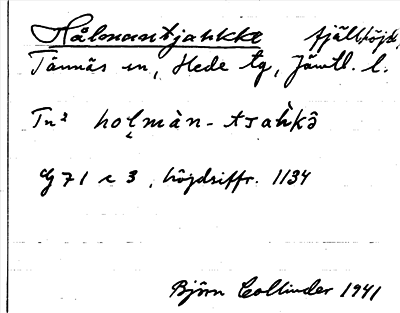 Hålmantjahkke fjällhöjd,
Tännäs sn, Hede tg, Jämtl. l.
Tn² hoļmàn-tsahkə̂
G 71 c 3, höjdsiffr. 1134
Björn Collinder 1941